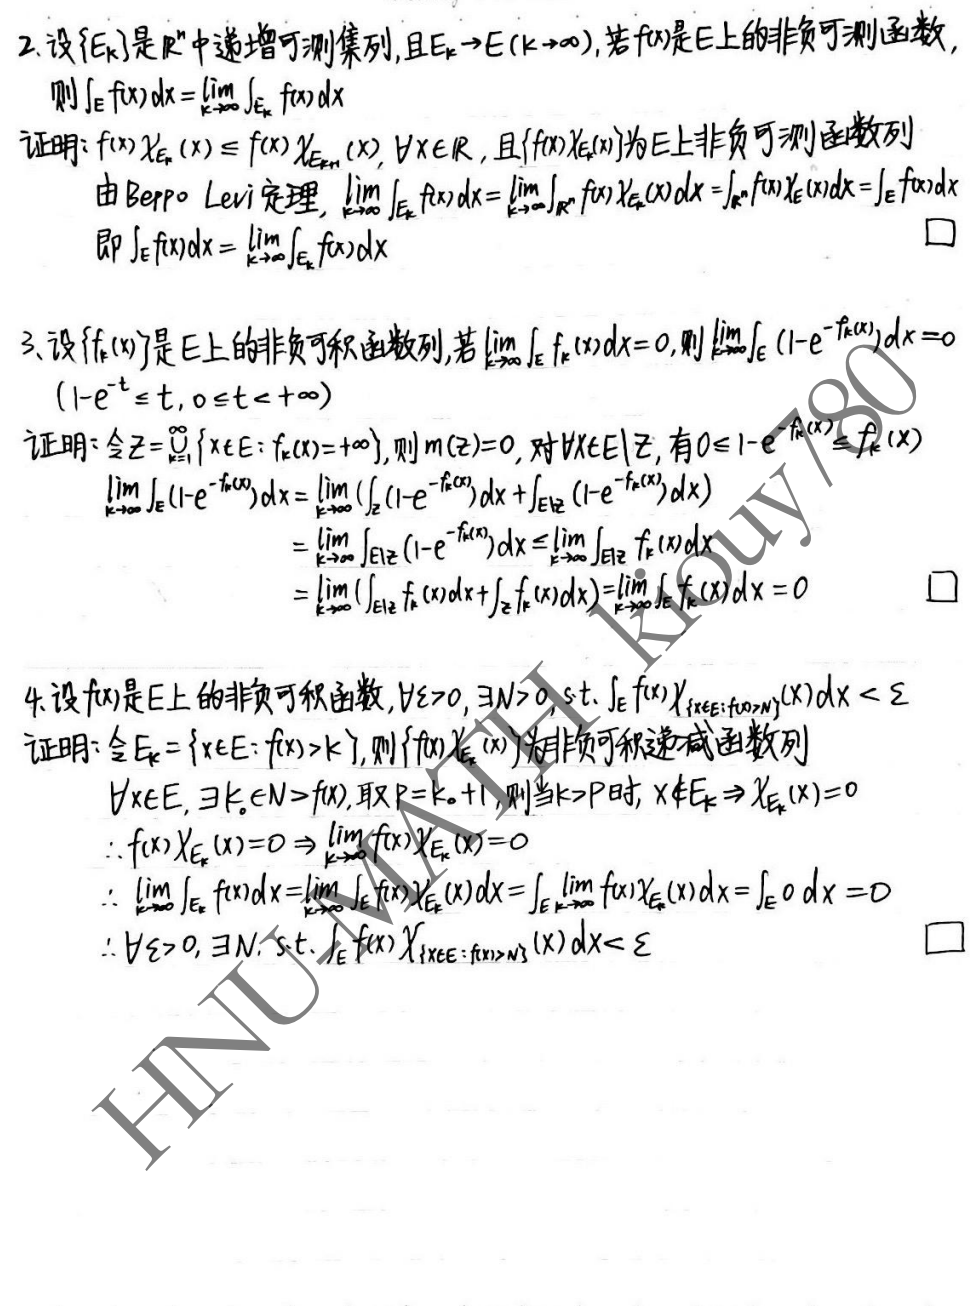 2、设{Eₖ}是ℝⁿ中递增可测集列,且Eₖ→E(k→∞),若f(x)是E上的非负可测函数,
则∫_E f(x)dx = lim_{k→∞} ∫_{Eₖ} f(x)dx
证明: f(x)χ_{Eₖ}(x) ≤ f(x)χ_{Eₖ₊₁}(x), ∀x∈ℝ, 且{f(x)χ_{Eₖ}(x)}为E上非负可测函数列
由Beppo Levi定理, lim_{k→∞} ∫_{Eₖ} f(x)dx = lim_{k→∞} ∫_{ℝⁿ} f(x)χ_{Eₖ}(x)dx = ∫_{ℝⁿ} f(x)χ_E(x)dx = ∫_E f(x)dx
即 ∫_E f(x)dx = lim_{k→∞} ∫_{Eₖ} f(x)dx □
3、设{fₖ(x)}是E上的非负可积函数列,若lim_{k→∞} ∫_E fₖ(x)dx=0,则lim_{k→∞} ∫_E (1-e^{-fₖ(x)})dx=0
(1-e^{-t} ≤ t, 0≤t<+∞)
证明: 令Z=⋃_{k=1}^{∞}{x∈E: fₖ(x)=+∞},则m(Z)=0,对∀x∈E\Z,有0≤1-e^{-fₖ(x)}≤fₖ(x)
lim_{k→∞} ∫_E (1-e^{-fₖ(x)})dx = lim_{k→∞} (∫_Z (1-e^{-fₖ(x)})dx + ∫_{E\Z} (1-e^{-fₖ(x)})dx)
= lim_{k→∞} ∫_{E\Z} (1-e^{-fₖ(x)})dx ≤ lim_{k→∞} ∫_{E\Z} fₖ(x)dx
= lim_{k→∞} (∫_{E\Z} fₖ(x)dx + ∫_Z fₖ(x)dx) = lim_{k→∞} ∫_E fₖ(x)dx = 0 □
4、设f(x)是E上的非负可积函数,∀ε>0,∃N>0,s.t. ∫_E f(x)χ_{{x∈E:f(x)>N}}(x)dx < ε
证明: 令Eₖ={x∈E: f(x)>k},则{f(x)χ_{Eₖ}(x)}为非负可积递减函数列
∀x∈E, ∃k₀∈N>f(x),取P=k₀+1,则当k>P时, x∉Eₖ ⇒ χ_{Eₖ}(x)=0
∴ f(x)χ_{Eₖ}(x)=0 ⇒ lim_{k→∞} f(x)χ_{Eₖ}(x)=0
∴ lim_{k→∞} ∫_{Eₖ} f(x)dx = lim_{k→∞} ∫_E f(x)χ_{Eₖ}(x)dx = ∫_E lim_{k→∞} f(x)χ_{Eₖ}(x)dx = ∫_E 0 dx = 0
∴ ∀ε>0, ∃N, s.t. ∫_E f(x)χ_{{x∈E:f(x)>N}}(x)dx < ε □
HNU-MATH kiouy780